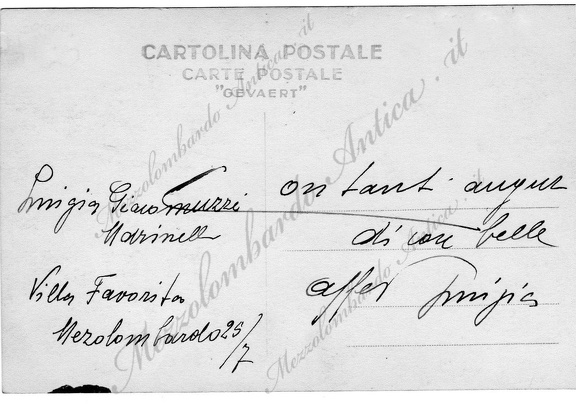 CARTOLINA POSTALE
CARTE POSTALE
"GEVAERT"
Luigia Giacomuzzi
Marinelli
Villa Favorita
Mezolombardo 25/7
on tanti auguri
di cose belle
affes Luigia
Mezzolombardo Antica.it
Mezzolombardo Antica.it
Mezzolombardo Antica.it